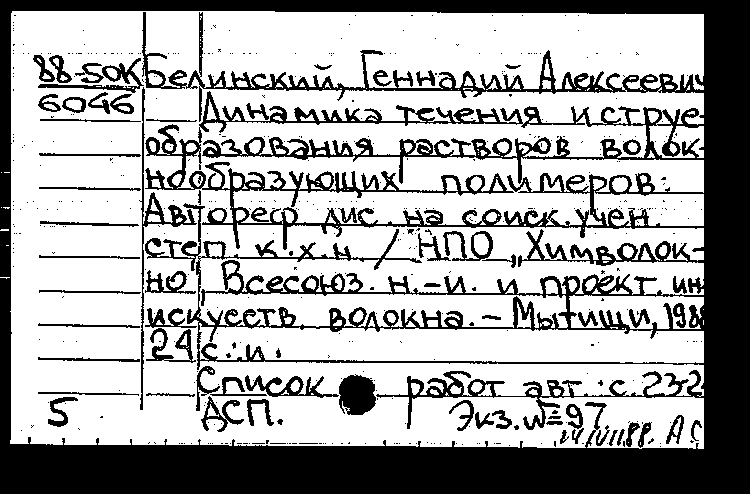 88-50К Белинский, Геннадий Алексеевич
6046 Динамика течения и струе-
образования растворов волок-
нообразующих полимеров:
Автореф. дис. на соиск. учен.
степ. к.х.н / НПО „Химволок-
но", Всесоюз. н.-и. и проект. ин-
искусств. волокна. - Мытищи, 1988
24 с.: и.
Список работ авт.: с. 23-2
5 ДСП. Экз. № 97
АС